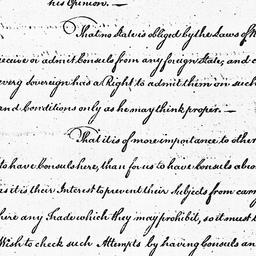 his Opinion. —
That no state is obliged by the Laws of
receive or admit Consuls from any foreign State, and
every Sovereign has a Right to admit them on such
and Conditions only as he may think proper. —
That it is of more importance to other
to have Consuls here, than for us to have Consuls
as it is their Interest to prevent their Subjects from
here any Trade which they may prohibit, so it must
Wish to check such Attempts by having Consuls